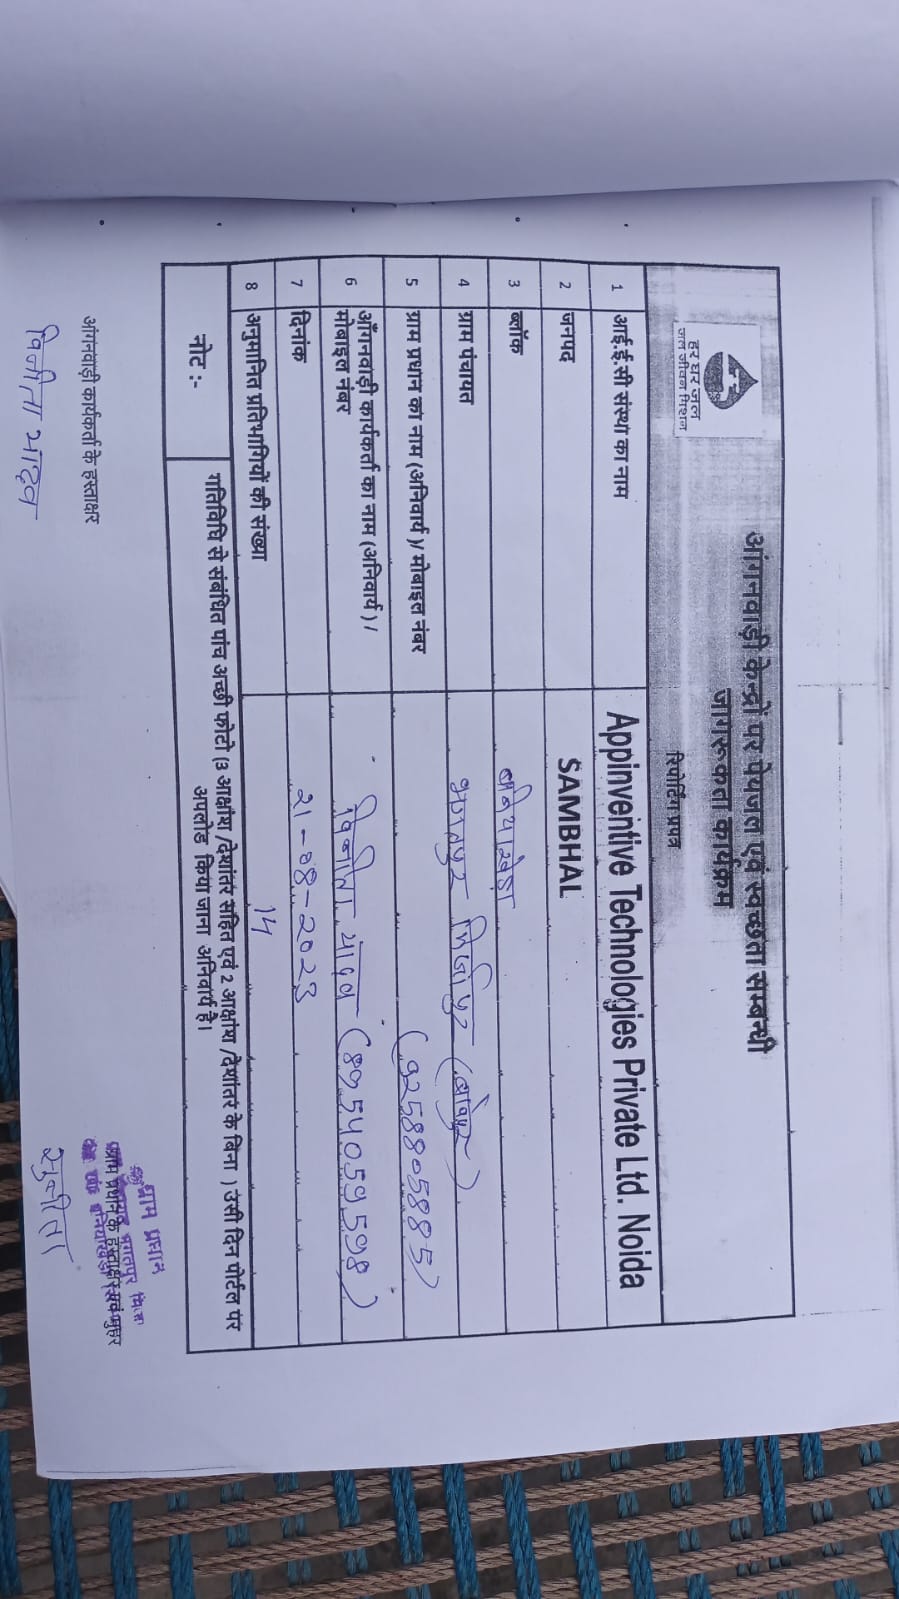 हर घर जल
जल जीवन मिशन
आंगनवाड़ी केन्द्रों पर पेयजल एवं स्वच्छता सम्बन्धी
जागरुकता कार्यक्रम
रिपोर्टिंग प्रपत्र
1 आई.ई.सी संस्था का नाम Appinventive Technologies Private Ltd. Noida
2 जनपद SAMBHAL
3 ब्लॉक बनियाखेड़ा
4 ग्राम पंचायत भरतपुर मिर्जापुर
5 ग्राम प्रधान का नाम (अनिवार्य)/ मोबाइल नंबर (9258805885)
6 आँगनवाड़ी कार्यकर्ता का नाम (अनिवार्य) / विनीता यादव (8954059598)
मोबाइल नंबर
7 दिनांक 21-08-2023
8 अनुमानित प्रतिभागियों की संख्या 14
नोट :- गतिविधि से संबंधित पांच अच्छी फोटो (3 आक्षांश /देशांतर सहित एवं 2 आक्षांश /देशांतर के बिना ) उसी दिन पोर्टल पर
अपलोड किया जाना अनिवार्य है।
आंगनवाड़ी कार्यकर्ता के हस्ताक्षर
विनीता यादव
ग्राम प्रधान
ग्राम प्रधान के हस्ताक्षर एवं मुहर
सुनीता